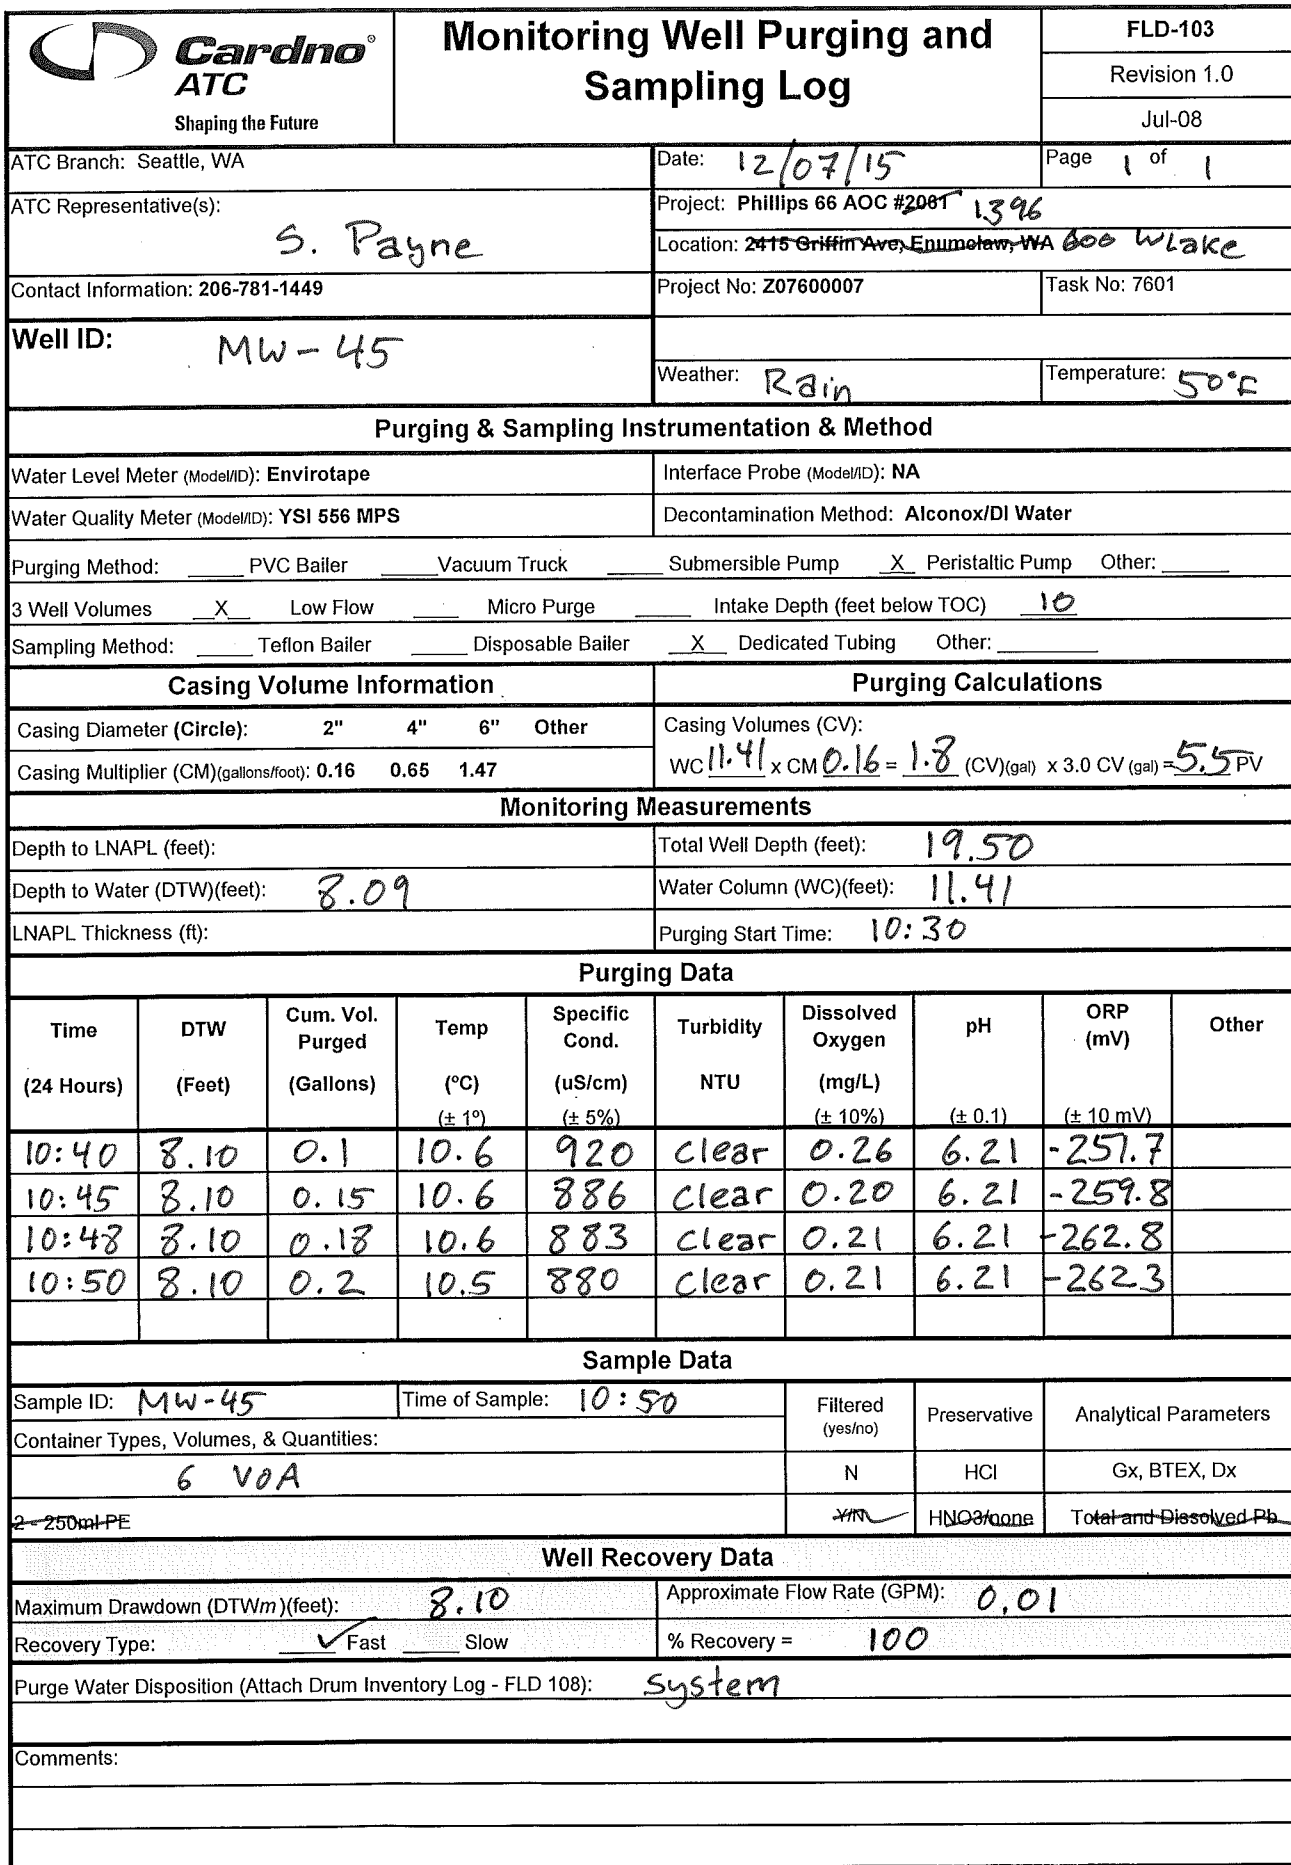 Cardno®
ATC
Shaping the Future
Monitoring Well Purging and
Sampling Log
FLD-103
Revision 1.0
Jul-08
ATC Branch: Seattle, WA
Date: 12/07/15
Page 1 of 1
ATC Representative(s):
S. Payne
Project: Phillips 66 AOC #2061 1396
Location: 2415 Griffin Ave, Enumclaw, WA 600 WLake
Contact Information: 206-781-1449
Project No: Z07600007
Task No: 7601
Well ID: MW-45
Weather: Rain
Temperature: 50°F
Purging & Sampling Instrumentation & Method
Water Level Meter (Model/ID): Envirotape
Interface Probe (Model/ID): NA
Water Quality Meter (Model/ID): YSI 556 MPS
Decontamination Method: Alconox/DI Water
Purging Method: ____ PVC Bailer ____ Vacuum Truck ____ Submersible Pump X Peristaltic Pump Other: ____
3 Well Volumes X Low Flow ____ Micro Purge ____ Intake Depth (feet below TOC) 10
Sampling Method: ____ Teflon Bailer ____ Disposable Bailer X Dedicated Tubing Other: ____
Casing Volume Information
Purging Calculations
Casing Diameter (Circle): 2" 4" 6" Other
Casing Volumes (CV):
Casing Multiplier (CM)(gallons/foot): 0.16 0.65 1.47
WC 11.41 x CM 0.16 = 1.8 (CV)(gal) x 3.0 CV (gal) = 5.5 PV
Monitoring Measurements
Depth to LNAPL (feet):
Total Well Depth (feet): 19.50
Depth to Water (DTW)(feet): 8.09
Water Column (WC)(feet): 11.41
LNAPL Thickness (ft):
Purging Start Time: 10:30
Purging Data
Time DTW Cum. Vol. Purged Temp Specific Cond. Turbidity Dissolved Oxygen pH ORP (mV) Other
(24 Hours) (Feet) (Gallons) (ºC) (uS/cm) NTU (mg/L)
(± 1º) (± 5%) (± 10%) (± 0.1) (± 10 mV)
10:40 8.10 0.1 10.6 920 clear 0.26 6.21 -257.7
10:45 8.10 0.15 10.6 886 clear 0.20 6.21 -259.8
10:48 8.10 0.18 10.6 883 clear 0.21 6.21 -262.8
10:50 8.10 0.2 10.5 880 clear 0.21 6.21 -262.3
Sample Data
Sample ID: MW-45
Time of Sample: 10:50
Filtered (yes/no)
Preservative
Analytical Parameters
Container Types, Volumes, & Quantities:
6 VOA
N
HCl
Gx, BTEX, Dx
2 - 250ml PE
Y/N
HNO3/none
Total and Dissolved Pb
Well Recovery Data
Maximum Drawdown (DTWm)(feet): 8.10
Approximate Flow Rate (GPM): 0.01
Recovery Type: ✓ Fast ____ Slow
% Recovery = 100
Purge Water Disposition (Attach Drum Inventory Log - FLD 108): System
Comments: